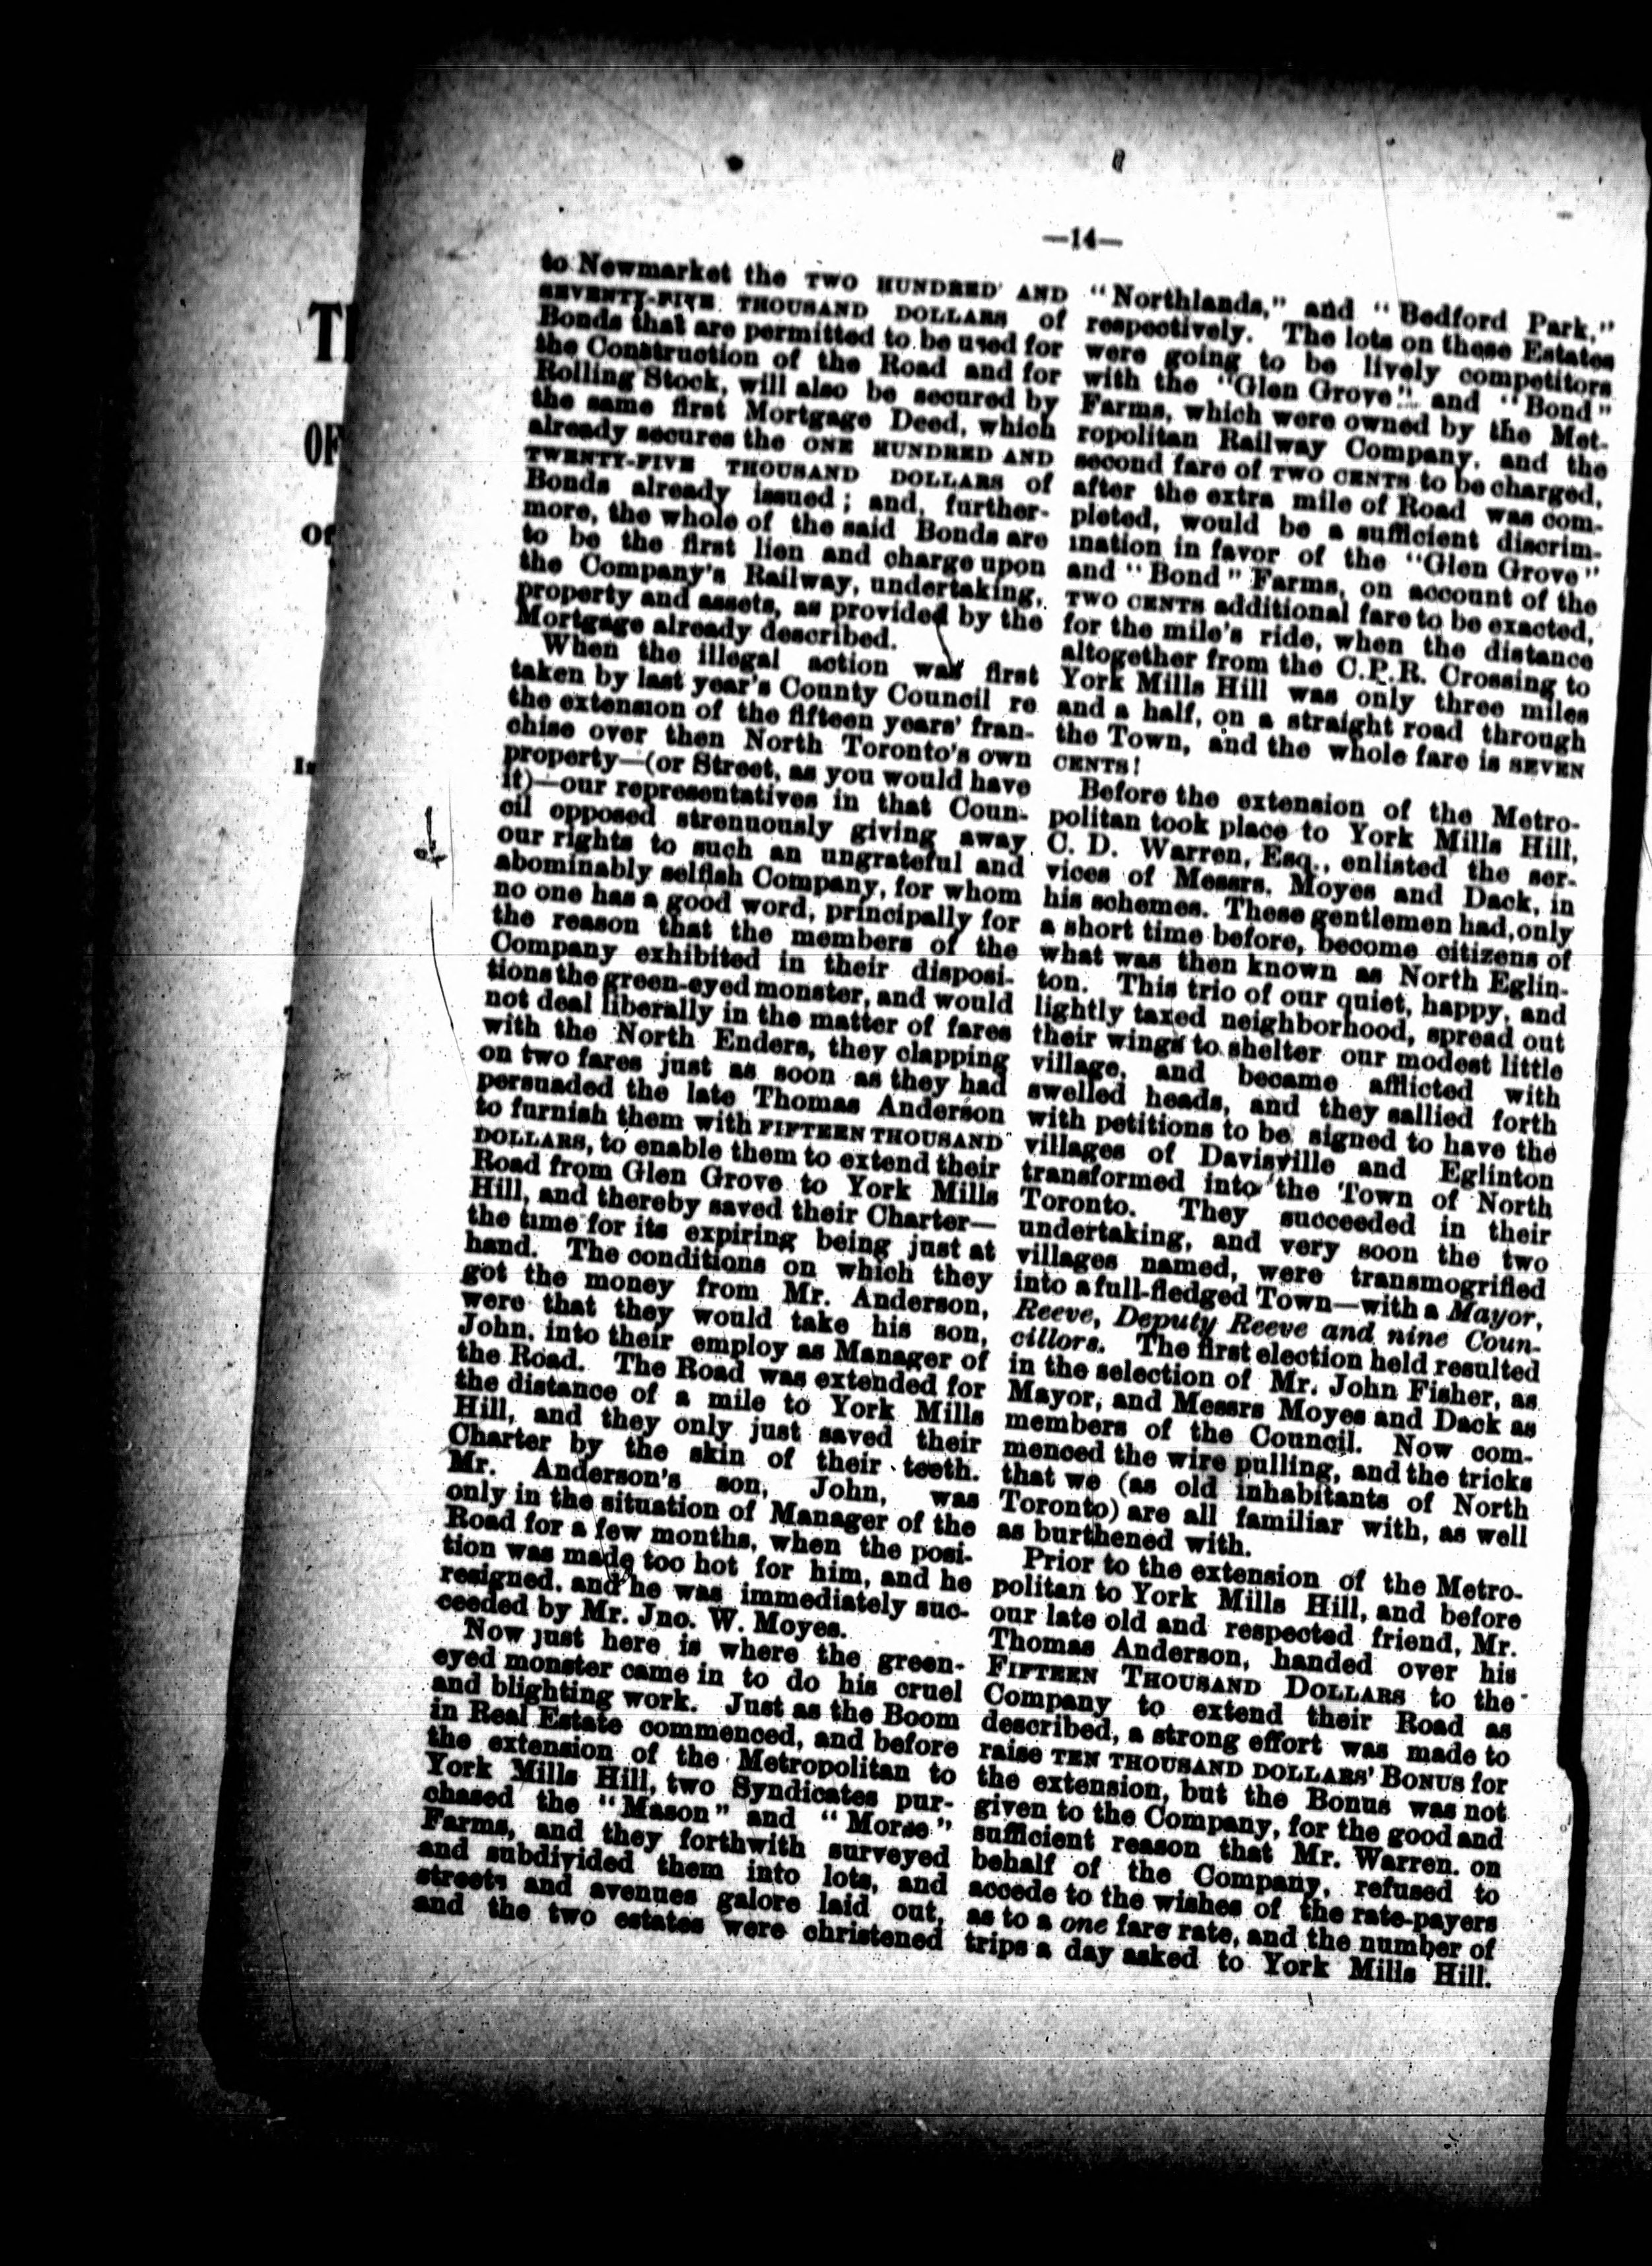 —14—
to Newmarket the TWO HUNDRED AND
SEVENTY-FIVE THOUSAND DOLLARS of
Bonds that are permitted to be used for
the Construction of the Road and for
Rolling Stock, will also be secured by
the same first Mortgage Deed, which
already secures the ONE HUNDRED AND
TWENTY-FIVE THOUSAND DOLLARS of
Bonds already issued; and, further-
more, the whole of the said Bonds are
to be the first lien and charge upon
the Company's Railway, undertaking,
property and assets, as provided by the
Mortgage already described.
When the illegal action was first
taken by last year's County Council re
the extension of the fifteen years' fran-
chise over then North Toronto's own
property—(or Street, as you would have
it)—our representatives in that Coun-
cil opposed strenuously giving away
our rights to such an ungrateful and
abominably selfish Company, for whom
no one has a good word, principally for
the reason that the members of the
Company exhibited in their disposi-
tions the green-eyed monster, and would
not deal liberally in the matter of fares
with the North Enders, they clapping
on two fares just as soon as they had
persuaded the late Thomas Anderson
to furnish them with FIFTEEN THOUSAND
DOLLARS, to enable them to extend their
Road from Glen Grove to York Mills
Hill, and thereby saved their Charter—
the time for its expiring being just at
hand. The conditions on which they
got the money from Mr. Anderson,
were that they would take his son,
John, into their employ as Manager of
the Road. The Road was extended for
the distance of a mile to York Mills
Hill, and they only just saved their
Charter by the skin of their teeth.
Mr. Anderson's son, John, was
only in the situation of Manager of the
Road for a few months, when the posi-
tion was made too hot for him, and he
resigned, and he was immediately suc-
ceeded by Mr. Jno. W. Moyes.
Now just here is where the green-
eyed monster came in to do his cruel
and blighting work. Just as the Boom
in Real Estate commenced, and before
the extension of the Metropolitan to
York Mills Hill, two Syndicates pur-
chased the "Mason" and "Morse"
Farms, and they forthwith surveyed
and subdivided them into lots, and
streets and avenues galore laid out,
and the two estates were christened
"Northlands," and "Bedford Park,"
respectively. The lots on these Estates
were going to be lively competitors
with the "Glen Grove" and "Bond"
Farms, which were owned by the Met-
ropolitan Railway Company, and the
second fare of TWO CENTS to be charged,
after the extra mile of Road was com-
pleted, would be a sufficient discrim-
ination in favor of the "Glen Grove"
and "Bond" Farms, on account of the
TWO CENTS additional fare to be exacted,
for the mile's ride, when the distance
altogether from the C.P.R. Crossing to
York Mills Hill was only three miles
and a half, on a straight road through
the Town, and the whole fare is SEVEN
CENTS!
Before the extension of the Metro-
politan took place to York Mills Hill,
C. D. Warren, Esq., enlisted the ser-
vices of Messrs. Moyes and Dack, in
his schemes. These gentlemen had, only
a short time before, become citizens of
what was then known as North Eglin-
ton. This trio of our quiet, happy, and
lightly taxed neighborhood, spread out
their wings to shelter our modest little
village, and became afflicted with
swelled heads, and they sallied forth
with petitions to be signed to have the
villages of Davisville and Eglinton
transformed into the Town of North
Toronto. They succeeded in their
undertaking, and very soon the two
villages named, were transmogrified
into a full-fledged Town—with a Mayor,
Reeve, Deputy Reeve and nine Coun-
cillors. The first election held resulted
in the selection of Mr. John Fisher, as
Mayor, and Messrs Moyes and Dack as
members of the Council. Now com-
menced the wire pulling, and the tricks
that we (as old inhabitants of North
Toronto) are all familiar with, as well
as burthened with.
Prior to the extension of the Metro-
politan to York Mills Hill, and before
our late old and respected friend, Mr.
Thomas Anderson, handed over his
FIFTEEN THOUSAND DOLLARS to the
Company to extend their Road as
described, a strong effort was made to
raise TEN THOUSAND DOLLARS' BONUS for
the extension, but the Bonus was not
given to the Company, for the good and
sufficient reason that Mr. Warren, on
behalf of the Company, refused to
accede to the wishes of the rate-payers
as to a one fare rate, and the number of
trips a day asked to York Mills Hill.